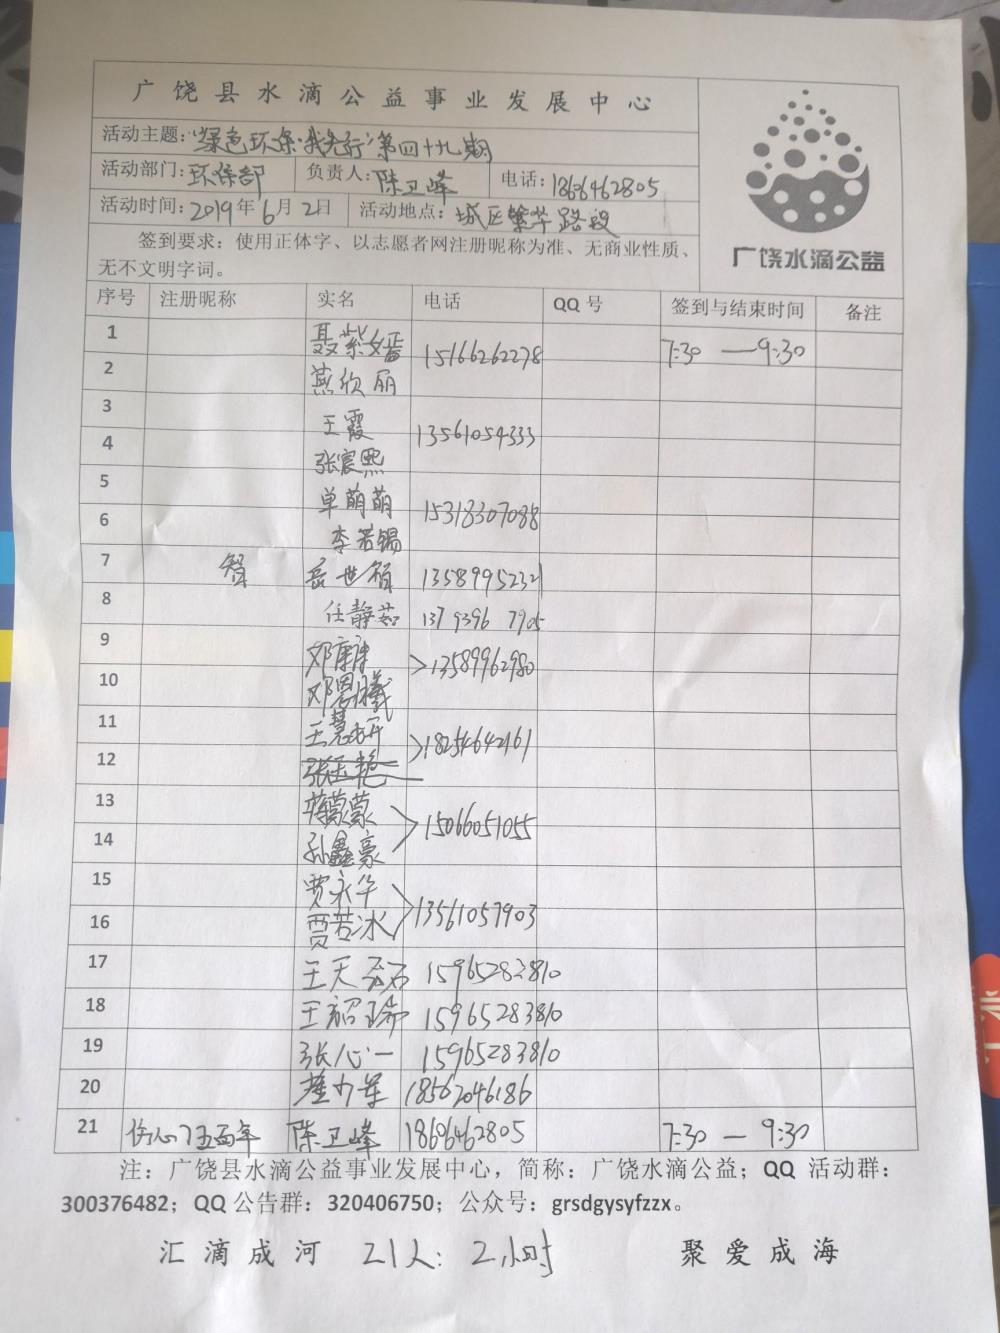 广饶县水滴公益事业发展中心
活动主题:"绿色环保·我先行"第四十九期
活动部门:环保部 负责人:陈卫峰 电话:18606462805
活动时间:2019年6月2日 活动地点:城区繁华路段
广饶水滴公益
签到要求:使用正体字、以志愿者网注册昵称为准、无商业性质、
无不文明字词。
序号 注册昵称 实名 电话 QQ号 签到与结束时间 备注
1 聂紫嫣 15166262278 7:30 — 9:30
2 燕欣丽
3 王霞 13561054333
4 张宸熙
5 单萌萌 15318307088
6 李若锡
7 智 岳世硕 13589995232
8 任静茹 137 9396 7905
9 邓康康 13589962980
10 邓
11 王慧妍 18254642161
12 张玉艳
13 蒋蒙蒙 15066051055
14 孙鑫豪
15 贾永华 13561057903
16 贾若冰
17 王天磊 15965283810
18 王韶瑞 15965283810
19 张心一 15965283810
20 18562046186
21 伤心了五百年 陈卫峰 18606462805 7:30 — 9:30
注:广饶县水滴公益事业发展中心,简称:广饶水滴公益;QQ 活动群:
300376482;QQ 公告群:320406750;公众号:grsdgysyfzzx。
汇滴成河 21人:2小时 聚爱成海